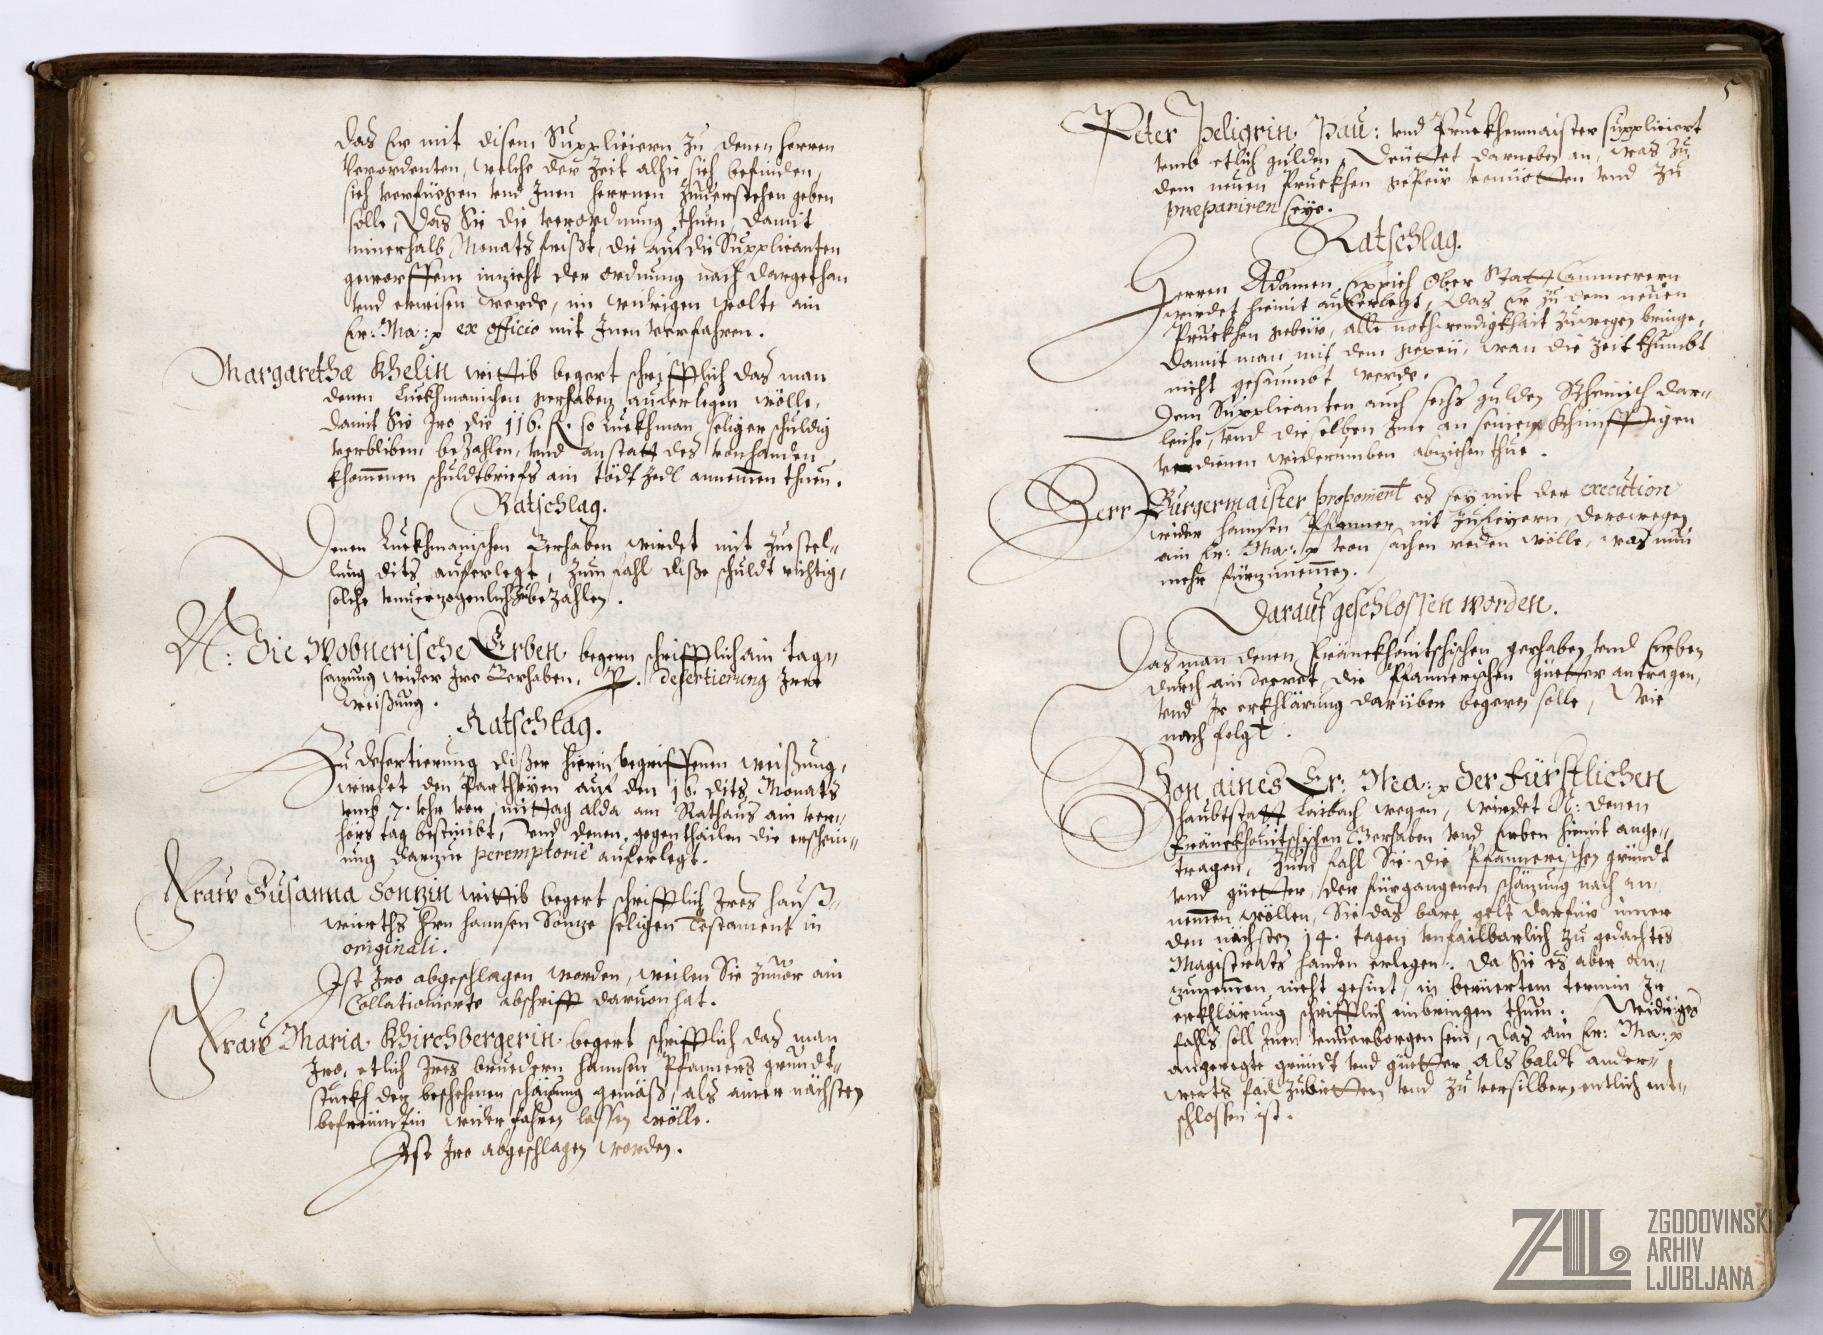 das Er mit disem Supplicieren zu denen herren
Verordenten, welche der Zeit alhie sich befinden,
sich verfüegen vnd Inen herrnen zuuerstehen geben
solle, Das Sie die verordnung thuen, damit
innerhalb Monats frißt, die auf die Supplicanten
geworffene inzicht der ordnung nach dargethan
vnd erwisen werde, im widrigen wolte ain
Er: Ma: ex officio mit Inen verfahren.
Margaretha Khelin wittib begert schrifftlich das man
denen Luckhmanischen gerhaben auferlegen wölle,
damit Sie Iro die 116. fl. so Luckhman seliger schuldig
verbliben, bezahlen, vnd anstatt des vonhanden
khommenen schuldtbriefs ain tödt Zedl annemmen thuen.
Ratschlag.
Denen Luckhmanischen Gerhaben wirdet mit Zuestel-
lung dits auferlegt, Zum fahl dise schuldt richtig,
solche vnuerzogenlich Zubezahlen.
N: Die Wobnerische Erben begern schrifftlich ain tag-
satzung wider Ire Gerhaben, P. desertierung Irer
weisung.
Ratschlag.
Zu desertierung diser hierin begriffenen weisung,
wirdet den Partheyen auf den 16. dits Monats
vmb 7. Vhr vor mittag alda am Rathaus ain ver-
hörs tag bestimbt, vnd denen gegenthailen die erschein-
ung darzue peremptoriè auferlegt.
Fraw Susanna Sonzin wittib begert schrifftlich Ires hauß-
wierths Hrn hannsen Sonze seligen Testament in
originali.
Ist Iro abgeschlagen worden, weilen Sie zuuor ain
Collationierte abschrifft daruon hat.
Fraw Maria Khirchbergerin begert schrifftlich das man
Iro, etlich Ires bruedern hannsen Pfanners grundt-
stuckh der beschehenen schäzung gemäß, als ainer nächsten
befreündtin widerfahren lassen wölle.
Ist Iro abgeschlagen worden.
5
Peter Peligrin Pau: vnd Pruckhenmaister suppliciert
vmb etlich gulden, Deüttet darneben an, was zu
dem neuen Pruckhen gepeü vonnotten vnd zu
præpariren seye.
Ratschlag.
Herren Adamen Eppich Ober Statt Cammerern
wirdet hiemit auferlegt, das Er zu dem neuen
Pruckhen gebeü, alle nothwendigkhait zuwegen bringe,
damit man mit dem gepeü, wan die Zeit khumbt
nicht gesaumbt werde.
Dem Supplicanten auch sechs gulden Reinisch dar-
leihe, vnd dieselben Ime an seinem khünfftigen
verdienen widerumben abziehen thue.
Herr Burgermaister proponiert es sey mit der execution
wider hannsen Pfanner nit zufeyern, derowegen
ain Er: Ma: von sachen reden wölle, was nun
mehr fürzunemmen.
Darauf geschlossen worden.
Das man denen Fränckhouitschischen gerhaben vnd Erben
durch ain decret, die Pfannerischen güetter antragen,
vnd Ir erkhlärung darüber begeren solle, Wie
nach folgt.
Von aines Er: Ma: der fürstlichen
haubtstatt Laibach wegen, wirdet N: denen
Fränckhouitschischen Gerhaben vnd Erben hiemit ange-
tragen, Zum fahl Sie die Pfannerischen gründt
vnd güetter, der fürgangenen schäzung nach an-
nemmen wöllen, Sie das bare gelt darfür inner
den nächsten 14. tagen vnfailbarlich zu gedachtes
Magistrats handen erlegen. Da Sie es aber an-
zunemmen nicht gesint, in beruertem termin Ir
erkhlärung schrifftlich einbringen thuen. Widriges
falls soll Inen vnuerborgen sein, das ain Er: Ma:
angeregte gründt vnd güetter als baldt ander-
werts fail zubietten vnd zu versilbern entlich ent-
schlossen ist.
ZAL
ZGODOVINSKI
ARHIV
LJUBLJANA